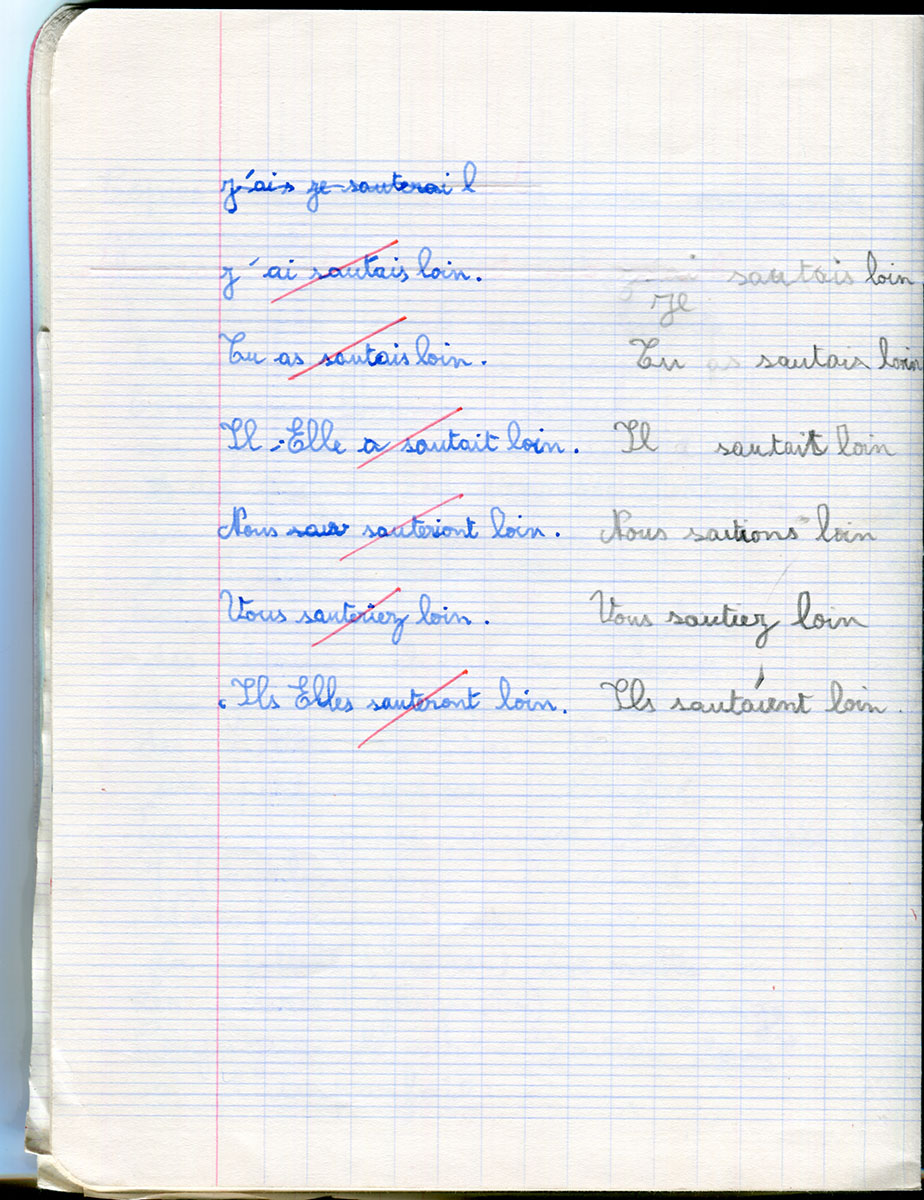 j'ais je sauterai l
j'ai sautais loin. sautais loin
Je
Tu as sautais loin. Tu as sautais loin
Il, Elle a sautait loin. Il sautait loin
Nous sau sauteriont loin. Nous sautions loin
Vous sauteriez loin. Vous sautiez loin
Ils Elles sauteront loin. Ils sautaient loin.